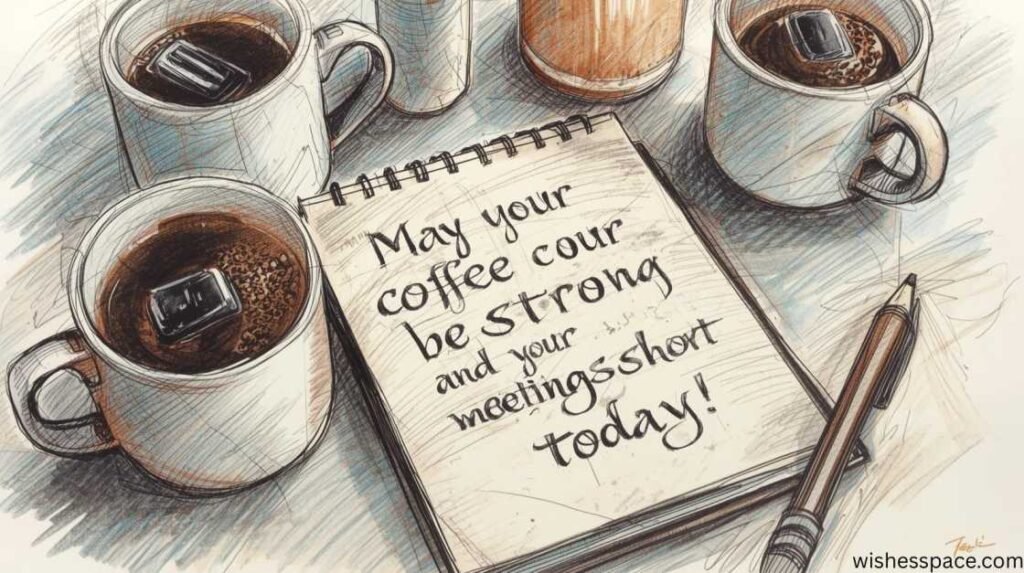 May your
coffee cour
be strong
and your
meetingsshort
today!
wishesspace.com